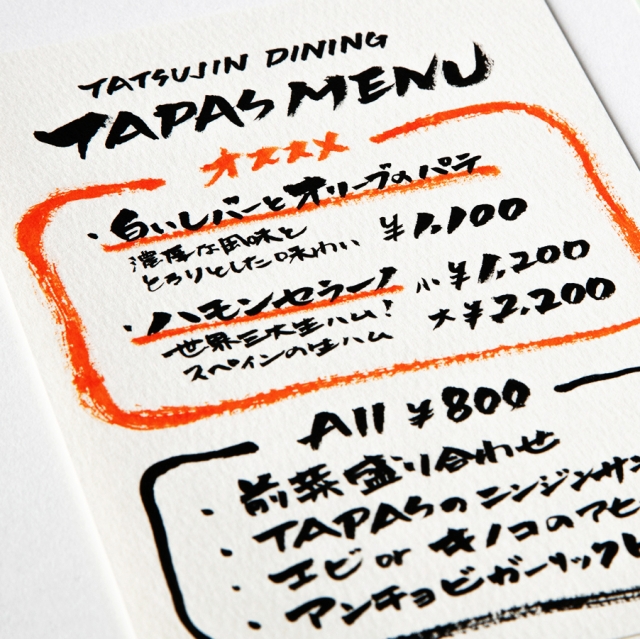 TATSUJIN DINING
TAPAS MENU
オススメ
・白いレバーとオリーブのパテ
濃厚な風味と
とろりとした味わい
¥1,100
・ハモンセラーノ
世界三大生ハム!
スペインの生ハム
小 ¥1,200
大 ¥2,200
All ¥800
・前菜盛り合わせ
・TAPASのニンジンサン
・エビ or キノコのアヒ
・アンチョビガーリック